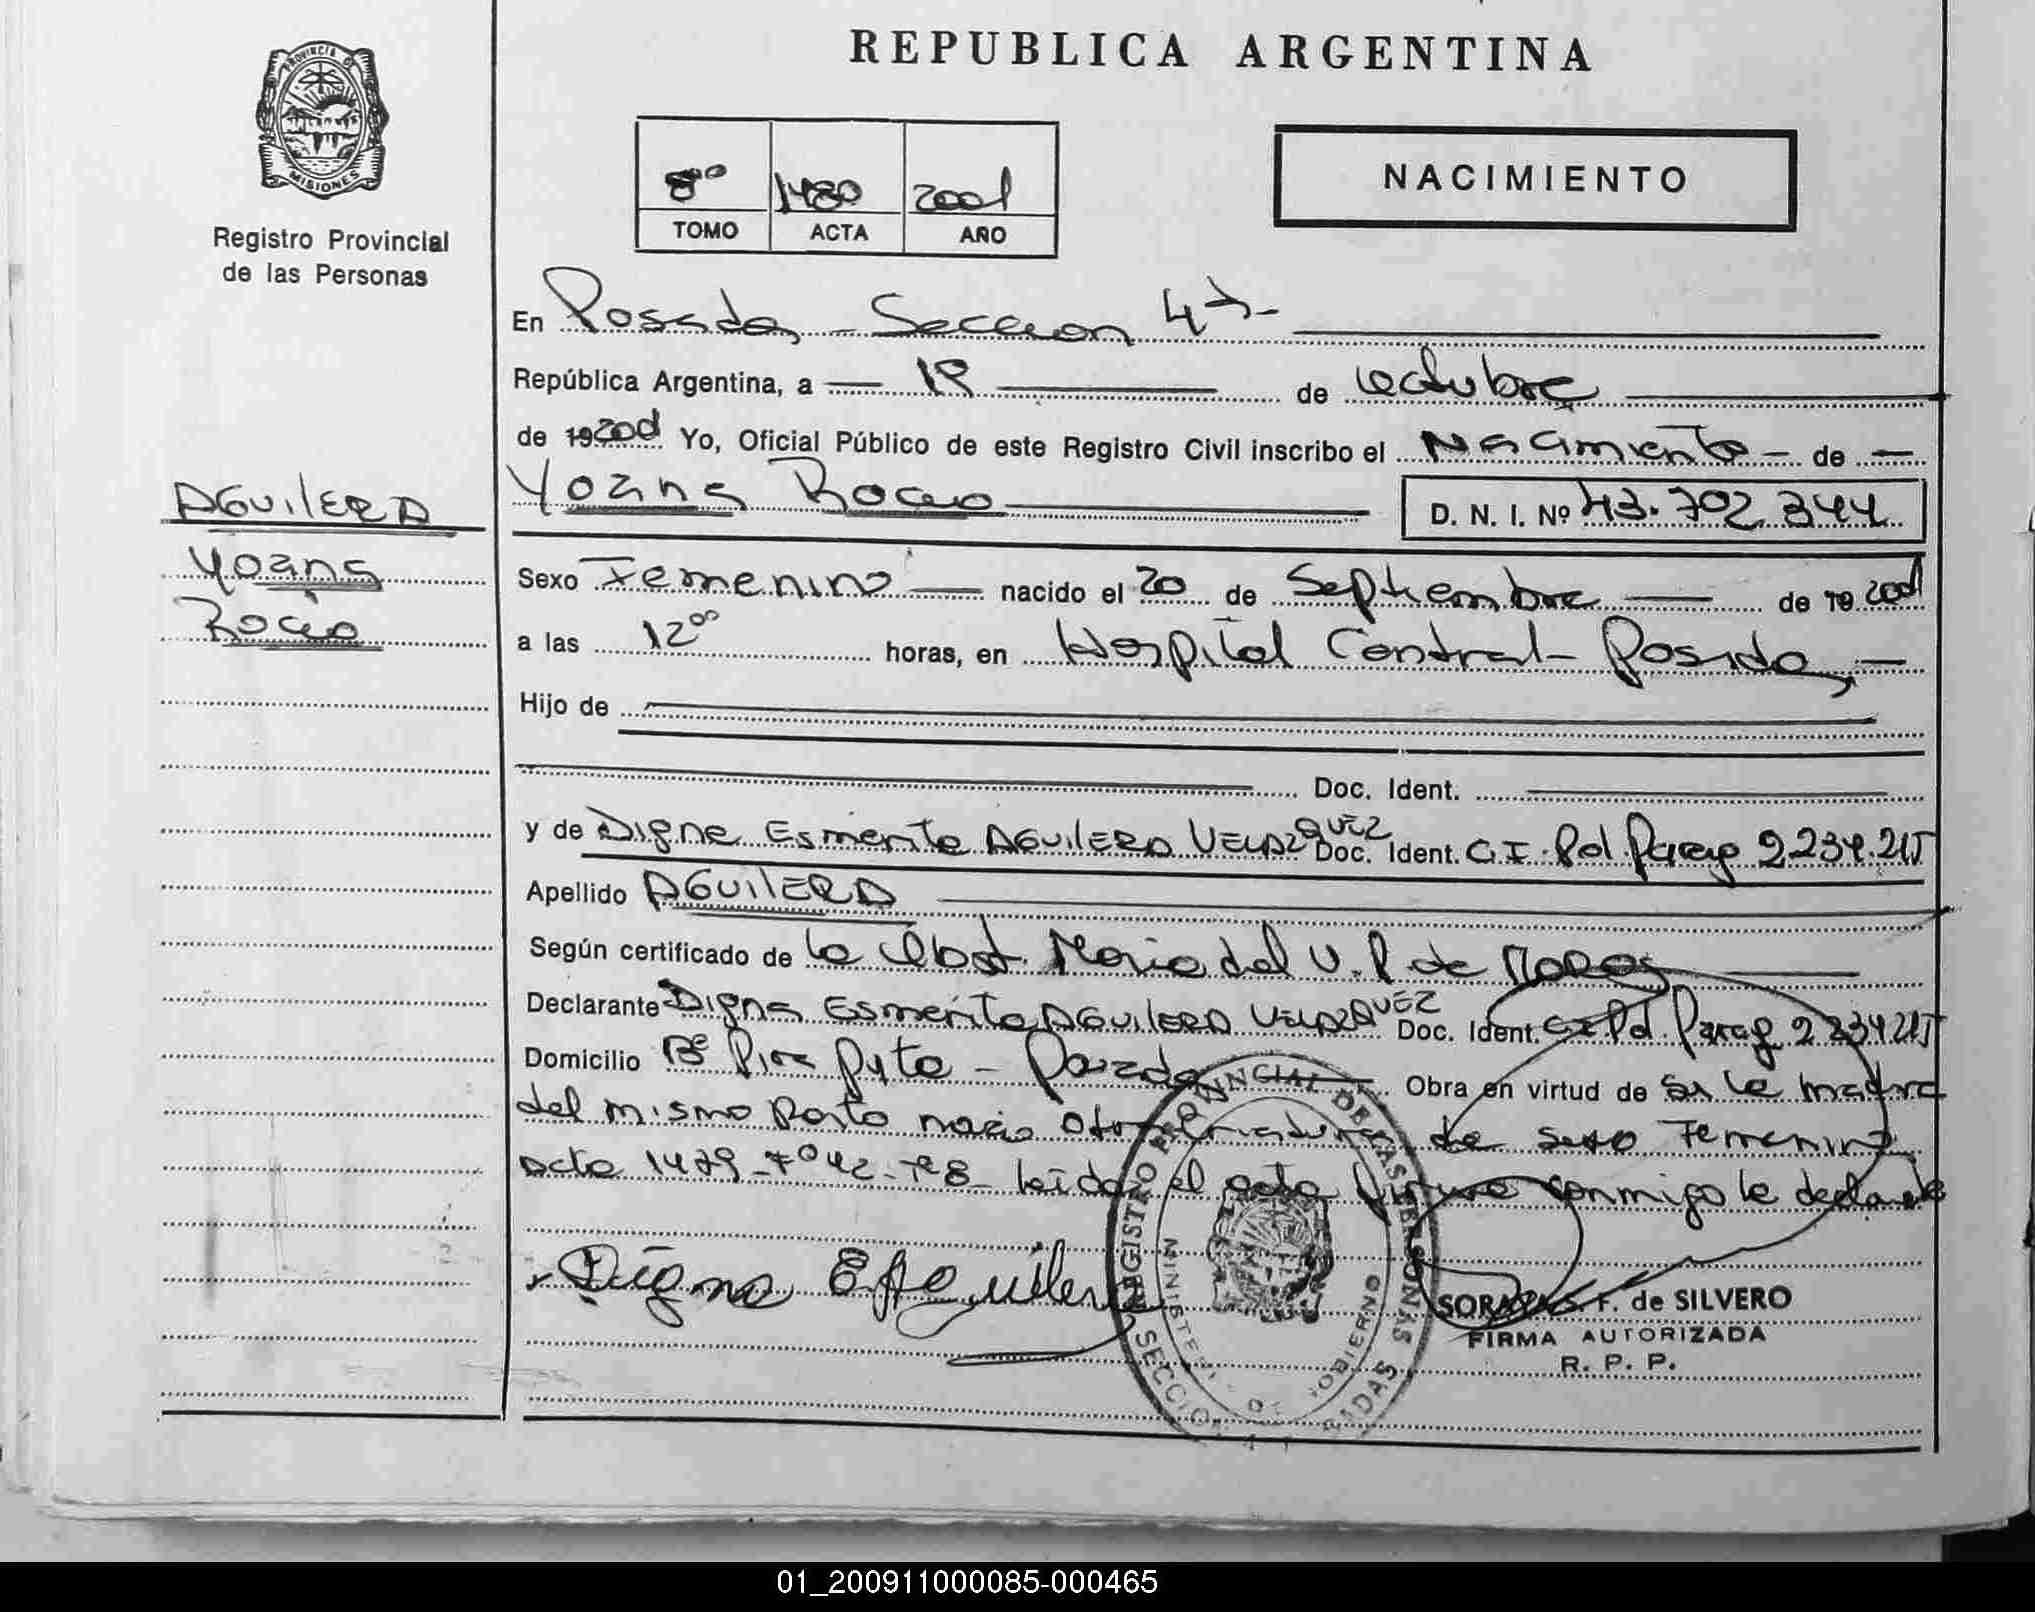 REPUBLICA ARGENTINA
PROVINCIA DE
MISIONES
Registro Provincial
de las Personas
8º 1480 2001
TOMO ACTA AÑO
NACIMIENTO
En Posadas Seccion 4ª
República Argentina, a 19 de octubre
de 192001 Yo, Oficial Público de este Registro Civil inscribo el Nacimiento de
Yoana Rocio
D. N. I. Nº 43.702.344
AGUILERA
Yoana
Rocio
Sexo Femenino nacido el 20 de Septiembre de 19 2001
a las 12⁰⁰ horas, en Hospital Central - Posadas
Hijo de
Doc. Ident.
y de Digna Esmerita AGUILERA VELAZQUEZ Doc. Ident. C.I. Pol Parag 2.234.215
Apellido AGUILERA
Según certificado de la Obst. Maria del V. P. de
Declarante Digna Esmerita AGUILERA VELAZQUEZ Doc. Ident. CI Pol. Parag 2 234 215
Domicilio Bº Pira Pyta - Posadas Obra en virtud de la madre
del mismo parto nacio otra de sexo Femenino
Acta 1479 - Tº 8 - leida el acta firma conmigo la declarante
Digna E Aguilera
REGISTRO PROVINCIAL DE LAS PERSONAS
MINISTERIO DE GOBIERNO
SECCION 4ª POSADAS
S. F. de SILVERO
FIRMA AUTORIZADA
R. P. P.
01_200911000085-000465